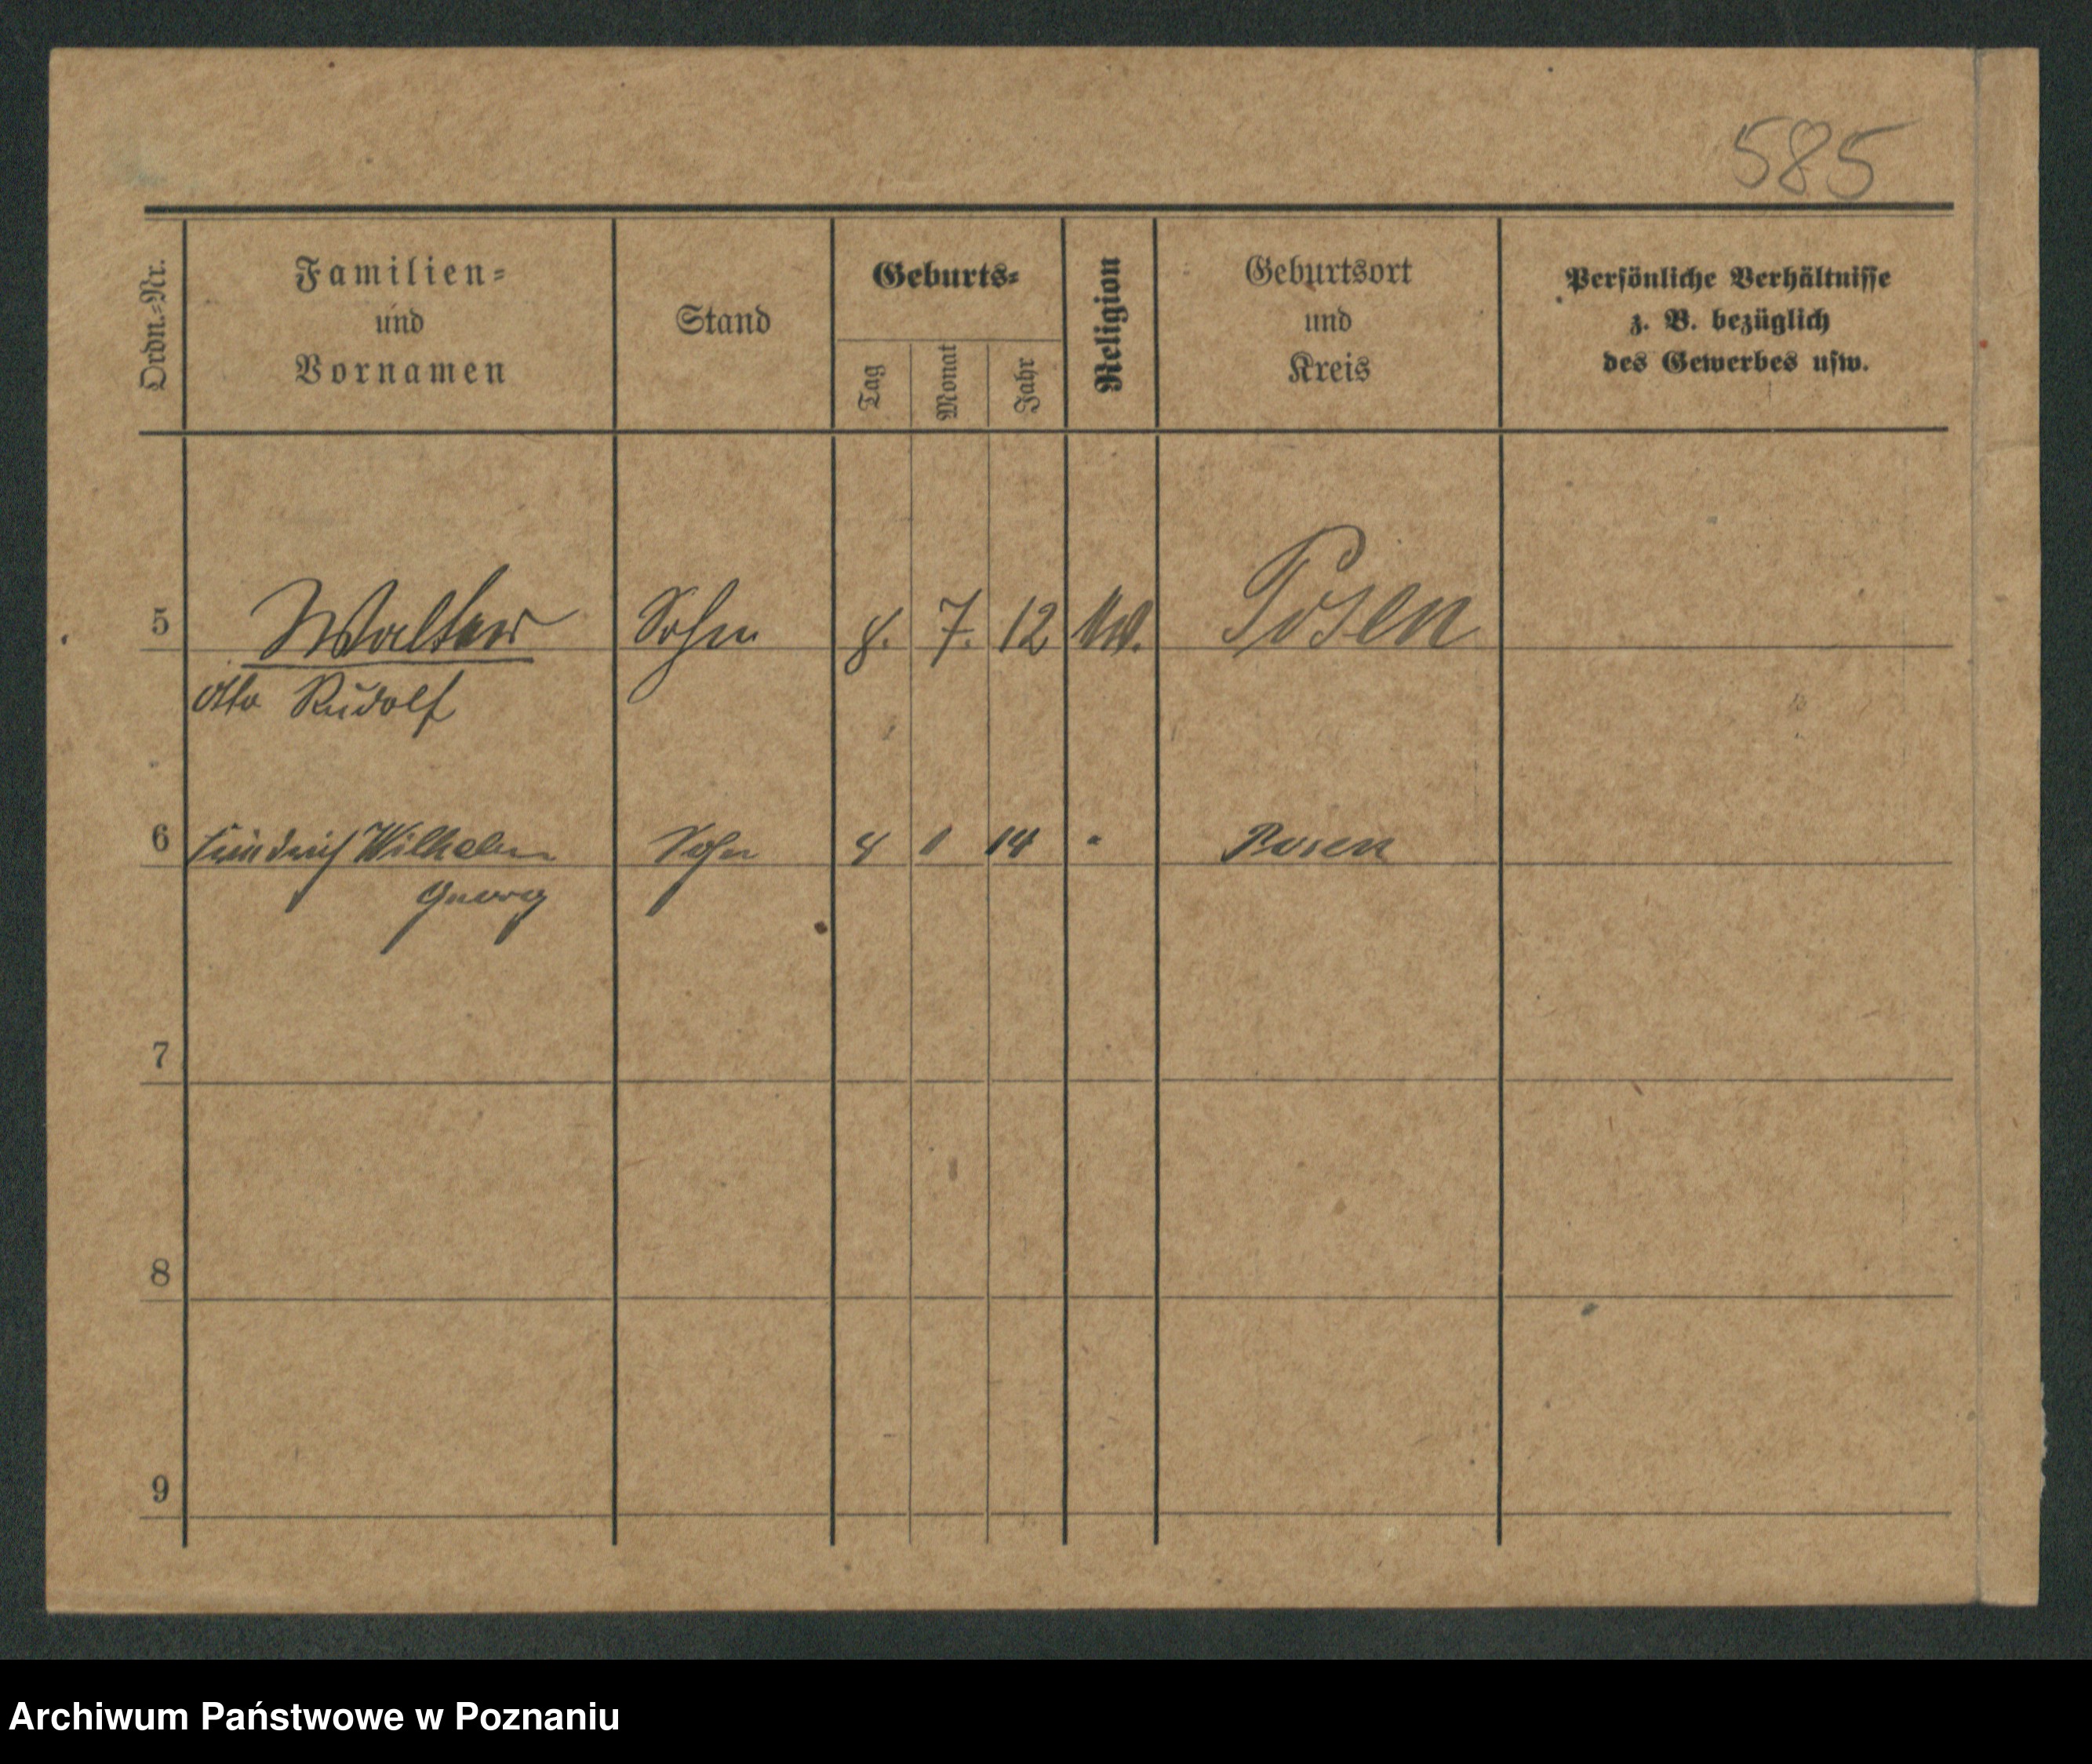 585
Ordn.-Nr.
Familien-
und
Vornamen
Stand
Geburts-
Tag
Monat
Jahr
Religion
Geburtsort
und
Kreis
Persönliche Verhältnisse
z. B. bezüglich
des Gewerbes usw.
5 Walter Sohn 8. 7. 12 Posen
Otto Rudolf
6 Friedrich Wilhelm Sohn 1 14 " Posen
Georg
7
8
9
Archiwum Państwowe w Poznaniu